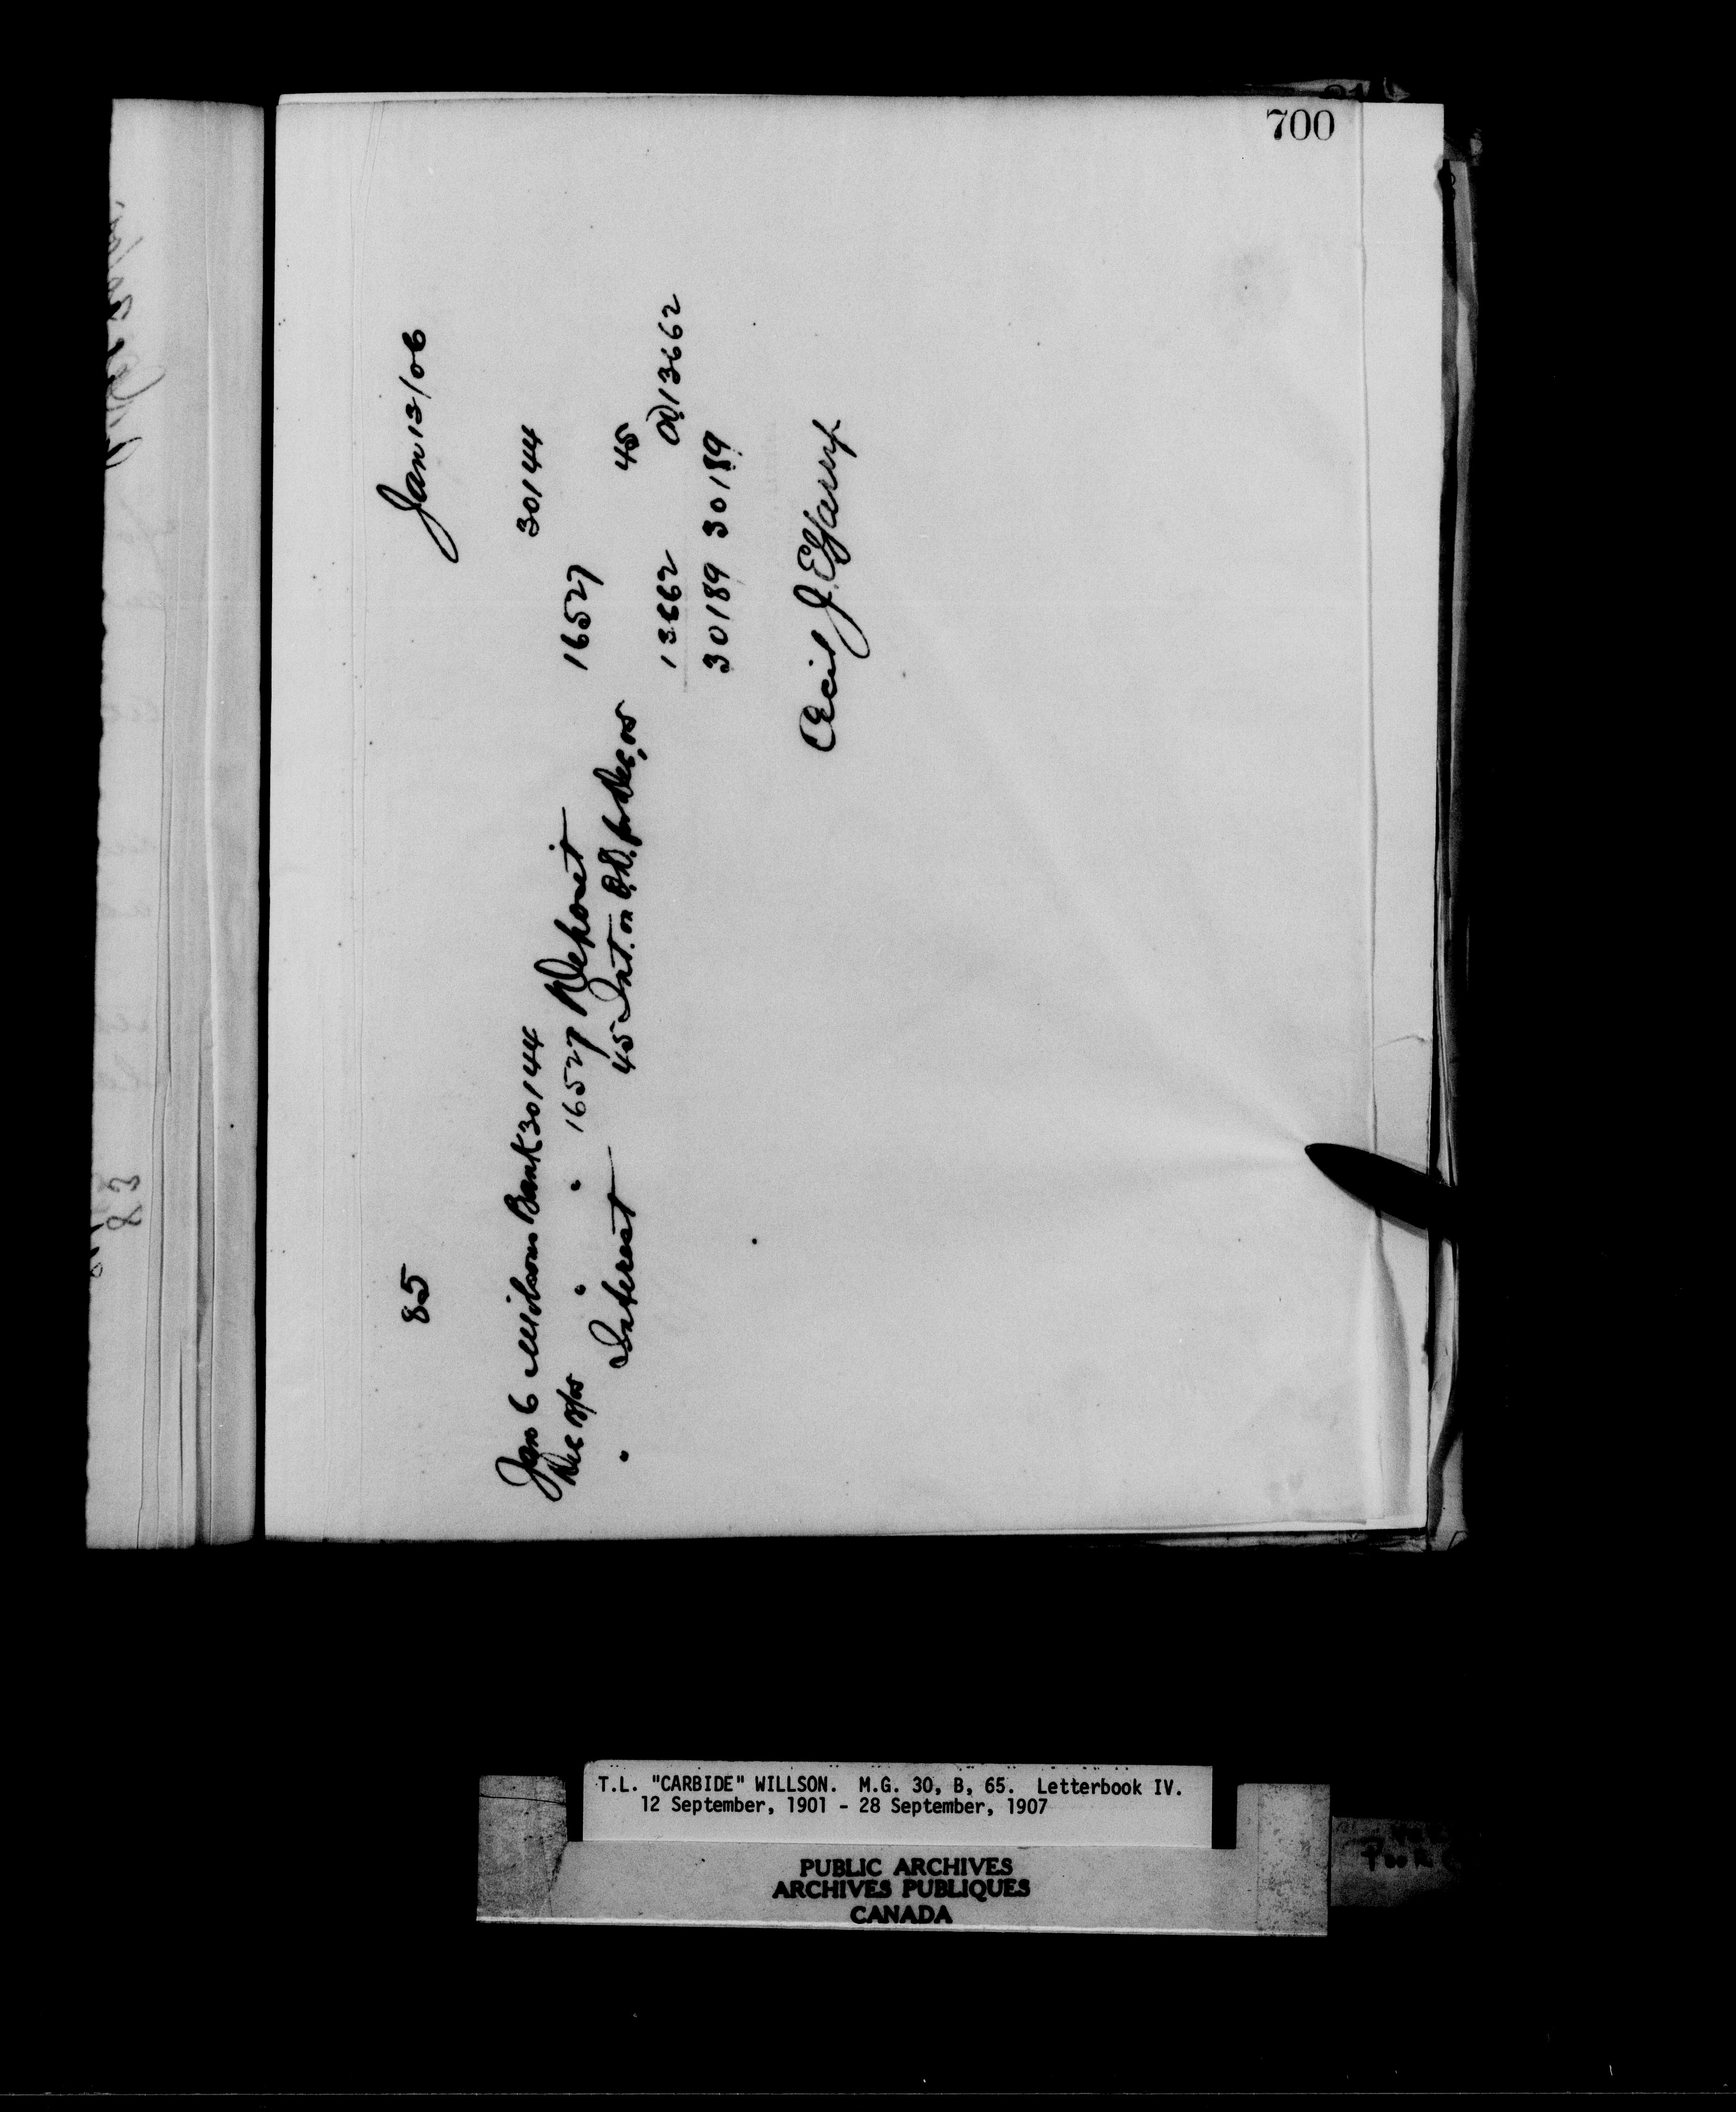 700
85 Jan 13/06
Jan 6 Molsons Bank 30144 30144
Dec 31/05 " " 16527 Deposit 16527
" Interest 45 Int. on O.D. for Dec, 05 45
13662 OD 13662
30189 30189
Cecil J. E.
83
T.L. "CARBIDE" WILLSON. M.G. 30, B, 65. Letterbook IV.
12 September, 1901 - 28 September, 1907
PUBLIC ARCHIVES
ARCHIVES PUBLIQUES
CANADA